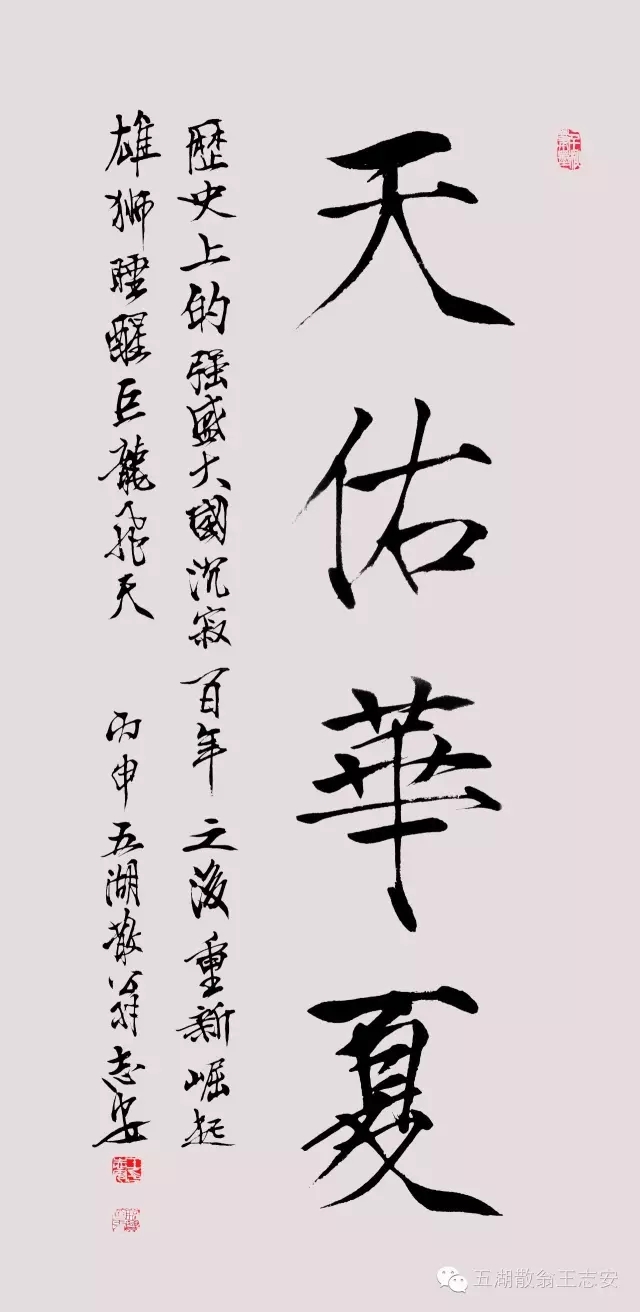 天佑華夏
歷史上的强盛大國沉寂百年之後重新崛起
雄狮睡醒巨龍飛天
丙申五湖散翁志安
五湖散翁王志安